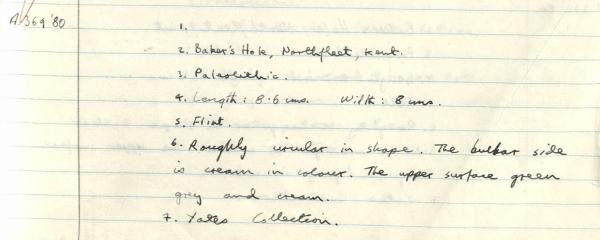 A 369 '80
1.
2. Baker's Hole, Northfleet, Kent.
3. Paleolithic.
4. Length: 8.6 cms. Width: 8 cms.
5. Flint.
6. Roughly circular in shape. The bulbar side
is cream in colour. The upper surface green
grey and cream.
7. Yates Collection.